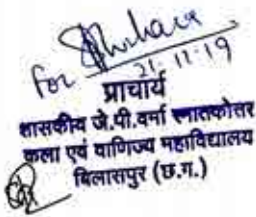 For
21.11.19
प्राचार्य
शासकीय जे.पी.वर्मा स्नातकोत्तर
कला एवं वाणिज्य महाविद्यालय
बिलासपुर (छ.ग.)